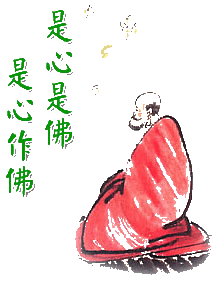 是心是佛
是心作佛